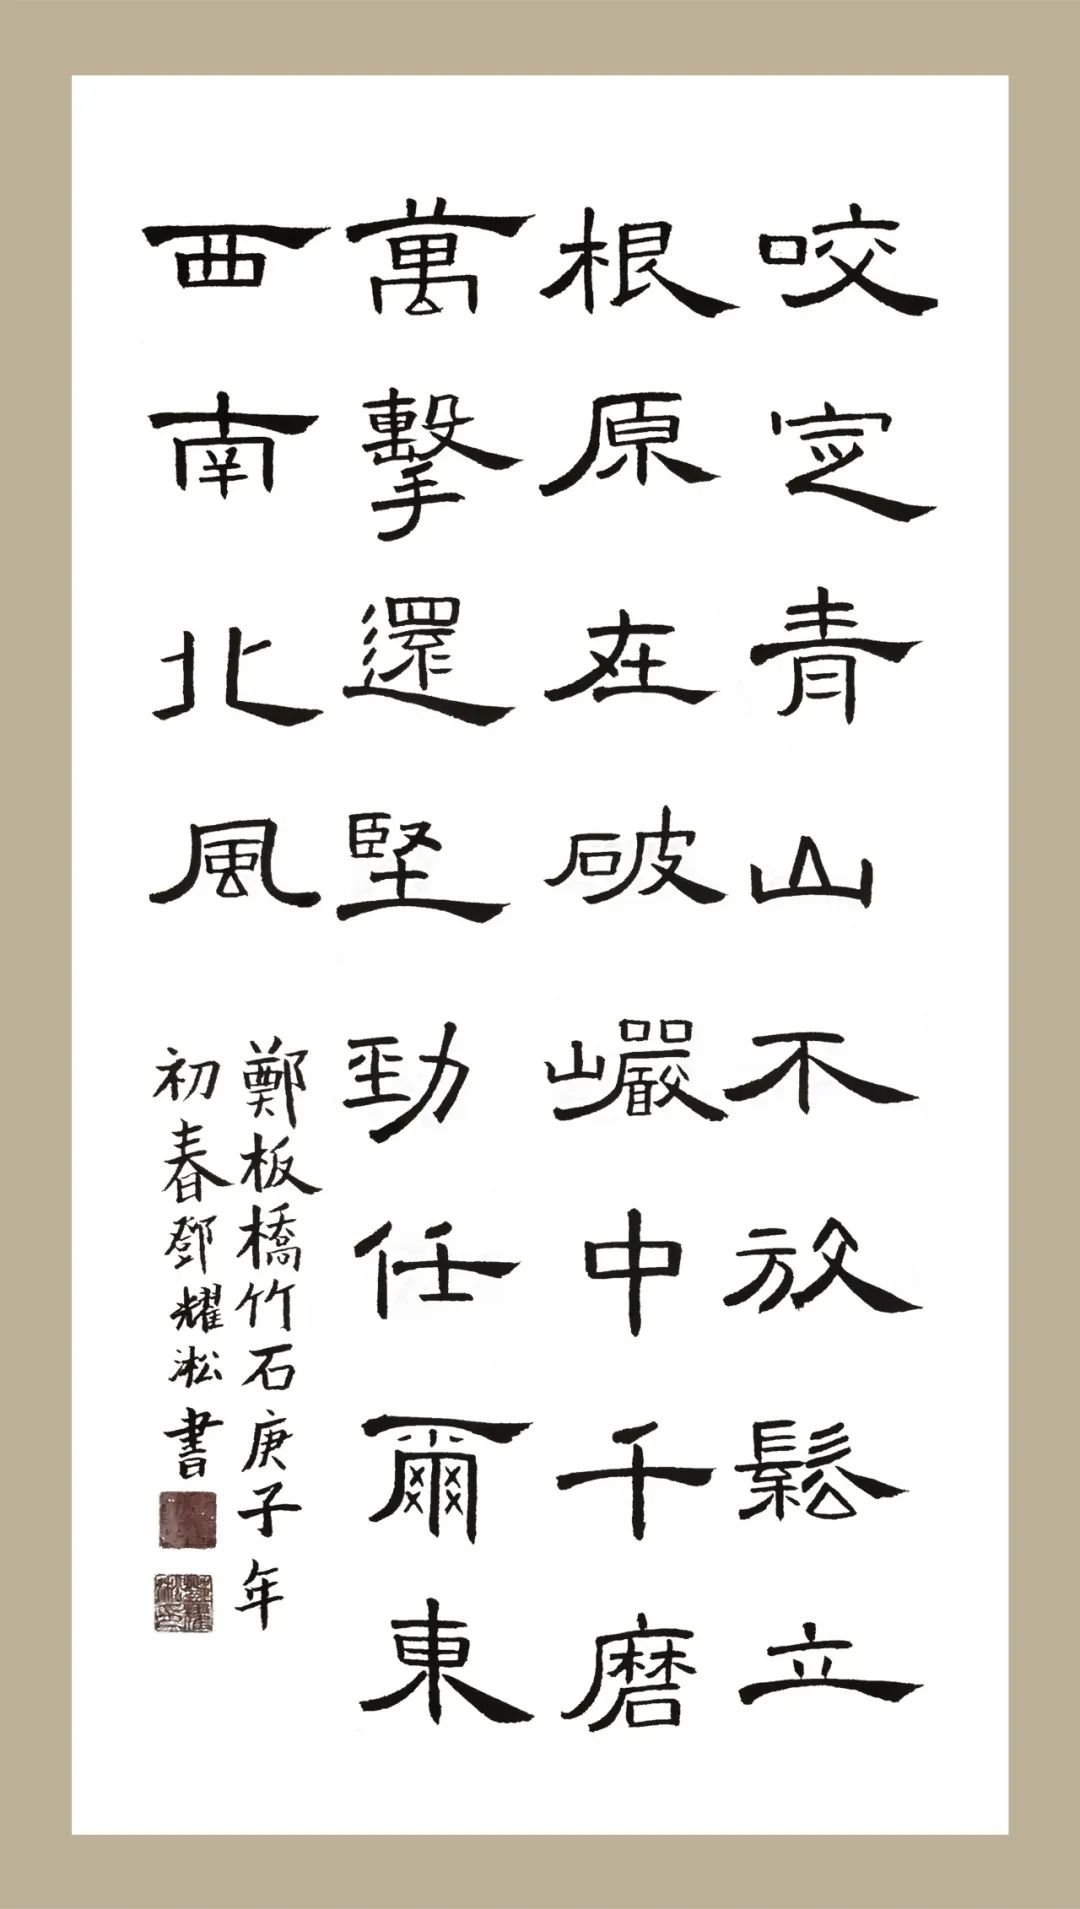 咬定青山不放鬆立
根原在破巖中千磨
萬擊還堅勁任爾東
西南北風
鄭板橋竹石庚子年
初春鄧耀淞書